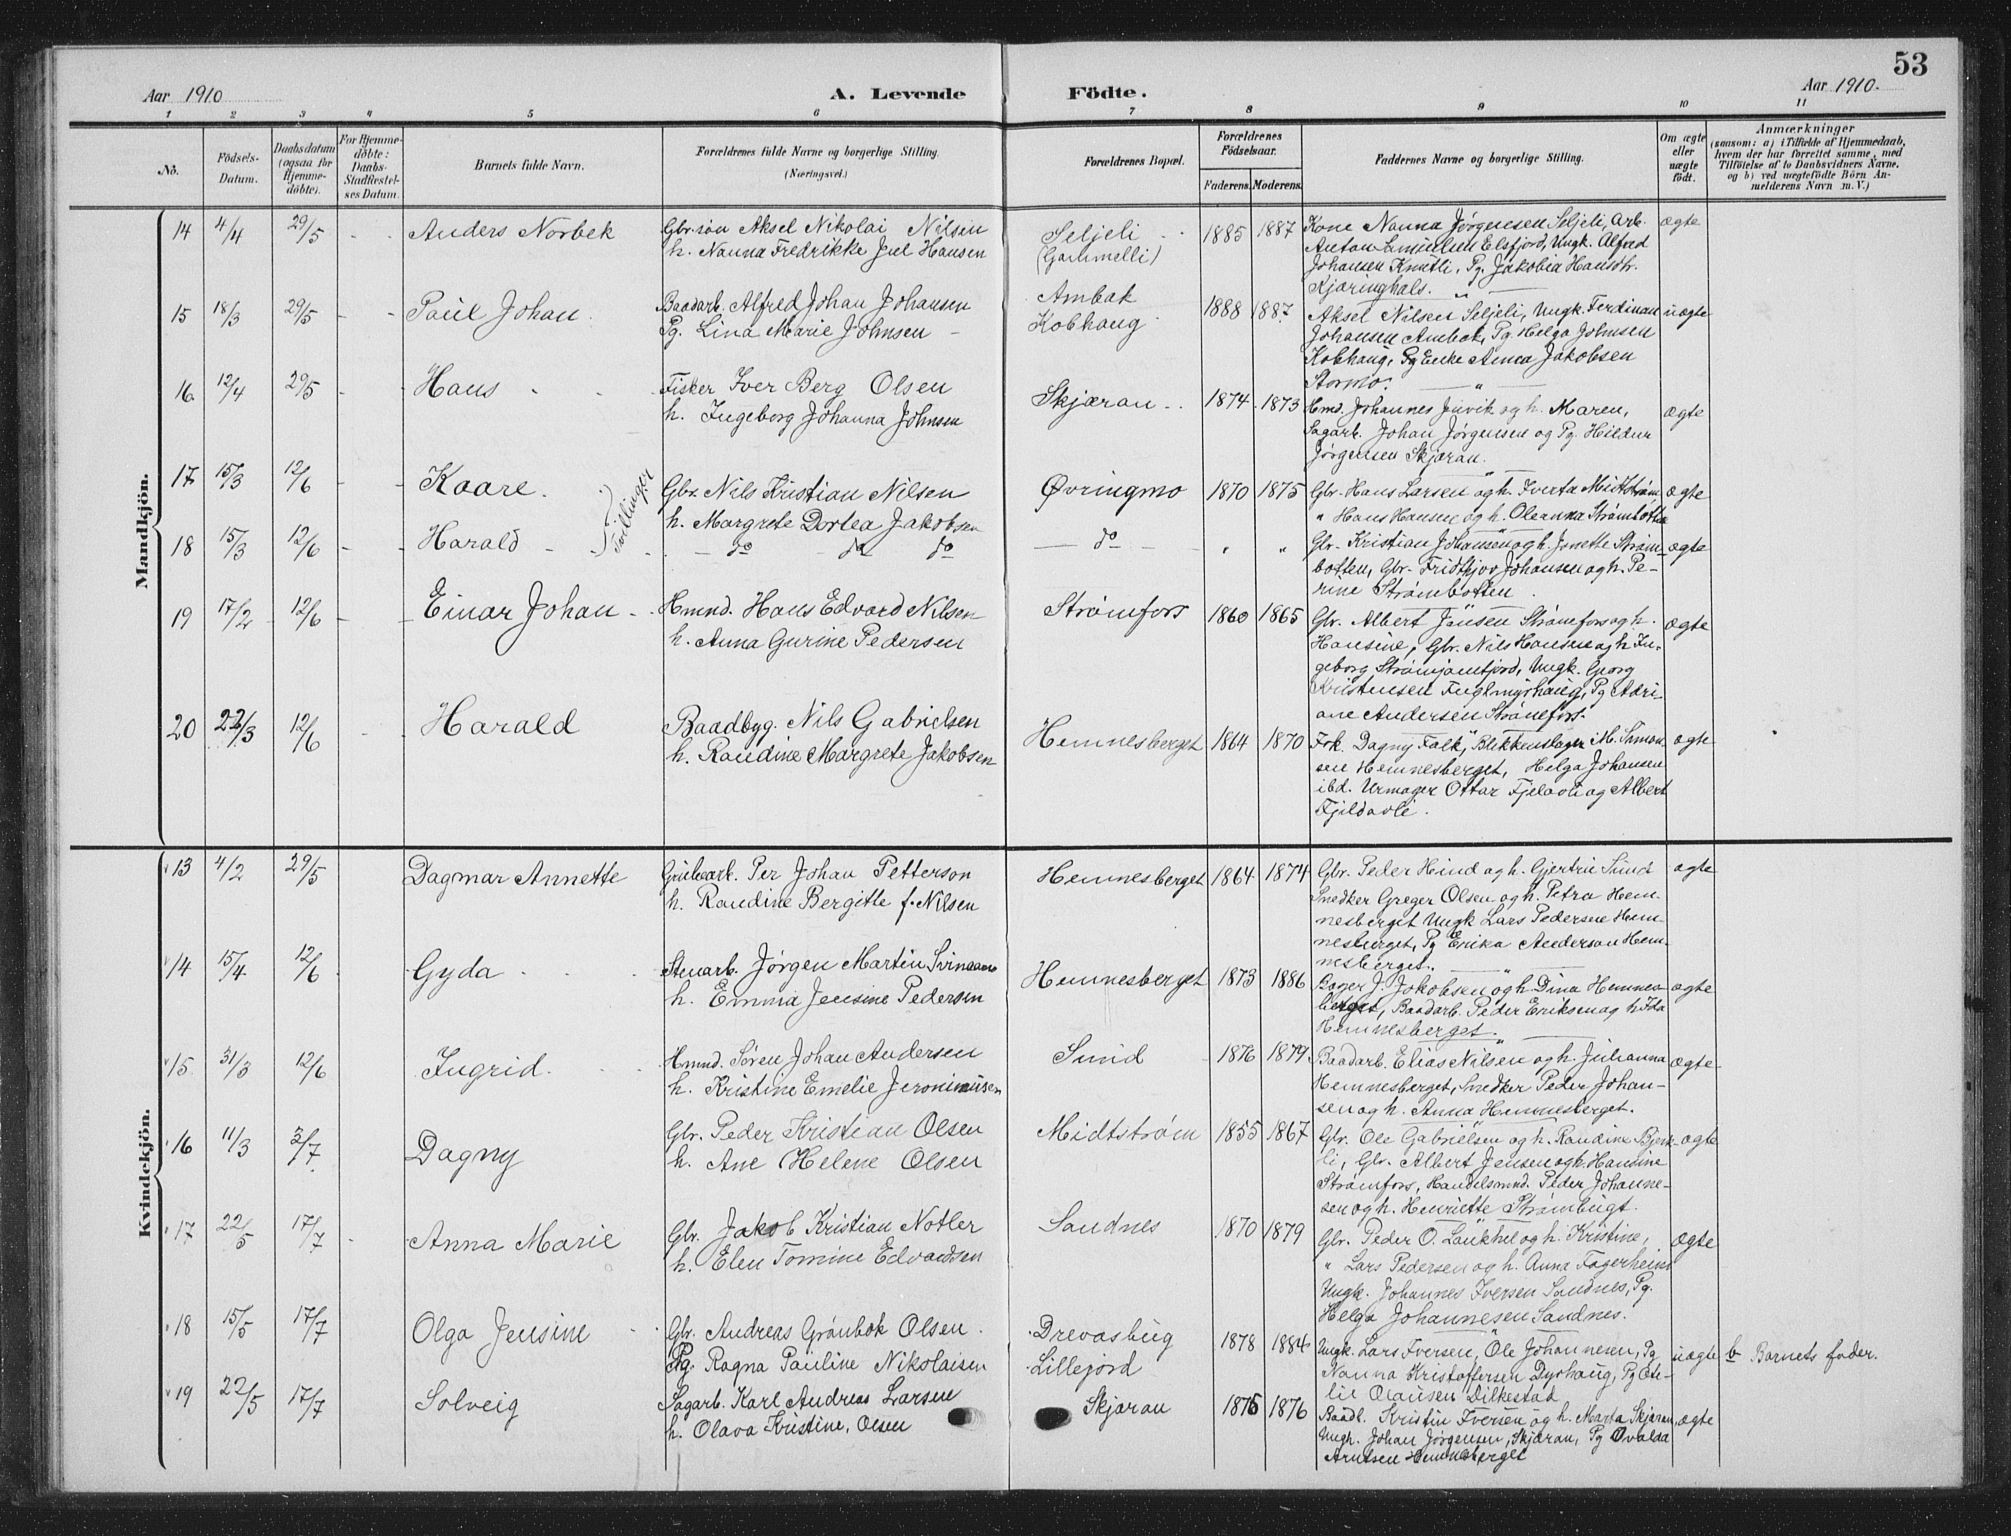 53
Aar 1910
A. Levende Födte.
Aar 1910.
1 2 3 4 5 6 7 8 9 10 11
No.
Födsels-Datum.
Daabsdatum (ogsaa for Hjemme-döbte).
For Hjemme-döbte: Daabs-Stadfestel-ses Datum.
Barnets fulde Navn.
Forældrenes fulde Navne og borgerlige Stilling. (Næringsvei.)
Forældrenes Bopæl.
Forældrenes Födselsaar.
Faderens. Moderens.
Faddernes Navne og borgerlige Stilling.
Om ægte eller uægte födt.
Anmærkninger
(saasom: a) i Tilfælde af Hjemmedaab,
hvem der har forrettet samme, med
Tilföielse af to Daabsvidners Navne.
og b) ved uægtefödte Börn An-
melderens Navn m. V.)
Mandkjön.
14 4/4 29/5 - - Anders Norbek
Gbr.søn Aksel Nikolai Nilsen
h. Nanna Fredrikke Jul Hansen
Seljeli
(Gammelli)
1885 1887
Kone Nanna Jørgensen Seljeli, Arb.
Anton Elsfjord, Ungk. Alfred
Johansen Knutli, Pg. Jakobia Hansdtr.
Kjæringhals.
ægte
15 18/3 29/5 - - Paul Johan
Baadarb. Alfred Johan Johansen
Pg. Lina Marie Johnsen
Ambak
Kobhaug
1888 1887
Aksel Nilsen Seljeli, Ungk. Ferdinan
Johansen Ambak, Pg Helga Johnsen
Kobhaug, Pg Enke Anna Jakobsen
Stormo.
uægte
16 12/4 29/5 - - Hans
Fisker Iver Berg Olsen
h. Ingeborg Johanna Johnsen
Skjæran
1874 1873
Hmd. Johannes og h. Maren,
Sagarb. Johan Jørgensen og Pg. Hildur
Jørgensen Skjæran.
ægte
17 15/3 12/6 - - Kaare.
Tvillinger
Gbr. Nils Kristian Nilsen
h. Margrete Dortea Jakobsen
Øvringmo
1870 1875
Gbr. Hans Larsen og h. Iverta Midtstrøm
" Hans Hansen og h. Oleanna Strømbotten
ægte
18 15/3 12/6 - - Harald
do do do
do
" "
Gbr. Kristian Johansen og h. Jonette Strøm-
botten, Gbr. Fridtjov Johansen og h. Pe-
rine Strømbotten.
ægte
19 17/2 12/6 - - Einar Johan
Hmnd. Hans Edvard Nilsen
h. Anna Gurine Pedersen
Strømfors
1860 1865
Gbr. Albert Jensen Strømfors og h.
Hansine, Gbr. Nils Hansen og h. In-
geborg, Ungk. Georg
Kristensen Fuglmyrhaug, Pg Adri-
ane Andersen Strømfors.
ægte
20 22/3 12/6 - Harald
Baadbyg. Nils Gabrielsen
h. Randine Margrete Jakobsen
Hemnesberget
1864 1870
Frk. Dagny Falk, Blikkenslager M. Simon-
sen Hemnesberget, Helga Johansen
ibd. Urmager Ottar og Albert
Fjeldavli.
ægte
Kvindekjön.
13 4/2 29/5 Dagmar Annette
Grubearb. Per Johan Petterson
h. Randine Bergitte f. Nilsen
Hemnesberget
1864 1874
Gbr. Peder Hind og h. Gjertrü Sund
Snedker Greger Olsen og h. Petra Hem-
nesberget Ungk Lars Pedersen Hem-
nesberget, Pg Erika Anderson Hem-
nesberget.
ægte
14 15/4 12/6 Gyda
Stenarb. Jørgen Martin
h. Emma Jensine Pedersen
Hemnesberget
1873 1886
Bager J. Jakobsen og h. Dina Hemnes-
berget, Baadarb. Peder Eriksen og h Ida
Hemnesberget.
ægte
15 31/3 12/6 Ingrid.
Hmnd. Søren Johan Andersen
h. Kristine Emelie Jeronimusen
Sund
1876 1879
Baadarb. Elias Nilsen og h. Julianna
Hemnesberget, Snedker Peder Johan-
sen og h. Anna Hemnesberget.
ægte
16 11/3 3/7 Dagny
Gbr. Peder Kristian Olsen
h. Ane Helene Olsen
Midtstrøm
1855 1867
Gbr. Ole Gabrielsen og h. Randine Bjerk-
li, Gbr. Albert Jensen og h. Hansine
Strømfors, Handelsmnd. Peder Johanne-
sen og h. Henriette Strømbugt.
ægte
17 22/5 17/7 - Anna Marie
Gbr. Jakob Kristian Notler
h. Elen Tomine Edvardsen
Sandnes
1870 1879
Gbr. Peder O. og h. Kristine,
" Lars Pedersen og h. Anna Fagerheim
Ungk. Johannes Iversen Sandnes, Pg.
Helga Johannesen Sandnes.
ægte
18 15/5 17/7 Olga Jensine
Gbr. Andreas Grønbok Olsen
Pg. Ragna Pauline Nikolaisen
Drevasbug
Lillejord
1878 1884
Ungk. Lars Iversen, Ole Johannesen, Pg
Nanna Kristoffersen Dyrhaug, Pg Ote-
lie Olausen Dilkestad
uægte
b Barnets fader.
19 22/5 17/7 Solveig
Sagarb. Karl Andreas Larsen
h. Olava Kristine, Olsen
Skjæran
1875 1876
Baadb. Kristin Iversen og h. Marta Skjæran,
Ungk. Johan Jørgensen, Skjæran, Pg Ovalda
Arntsen Hemnesberget
ægte